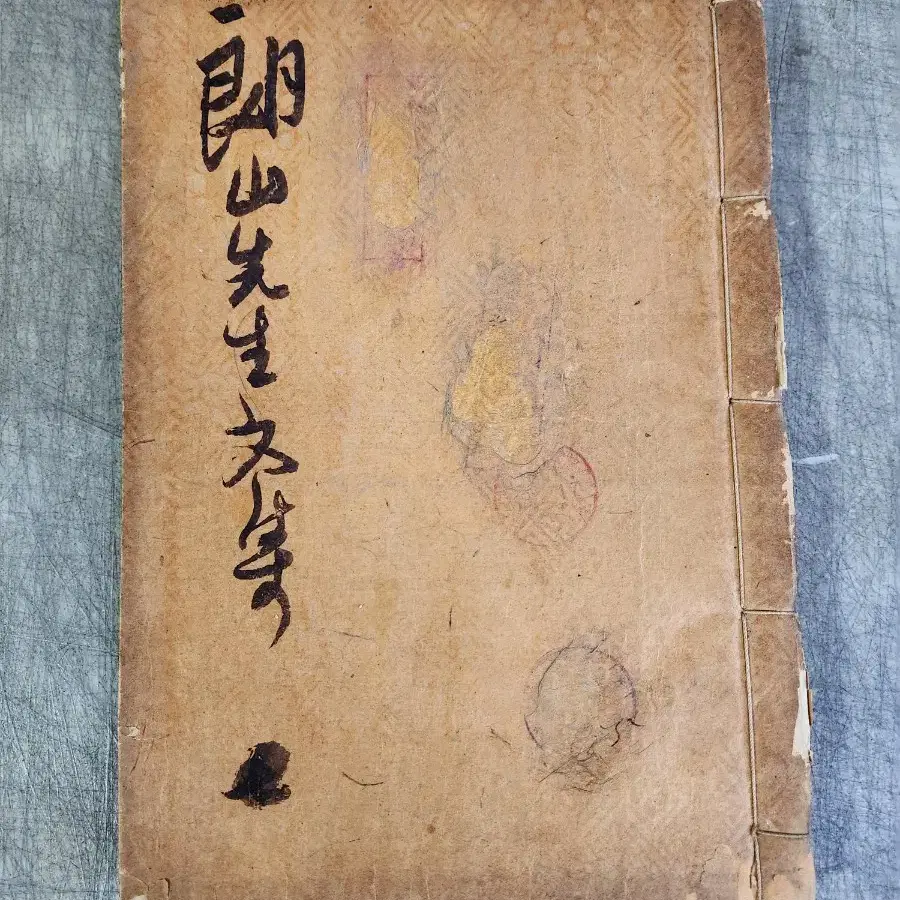 朗山先生文集